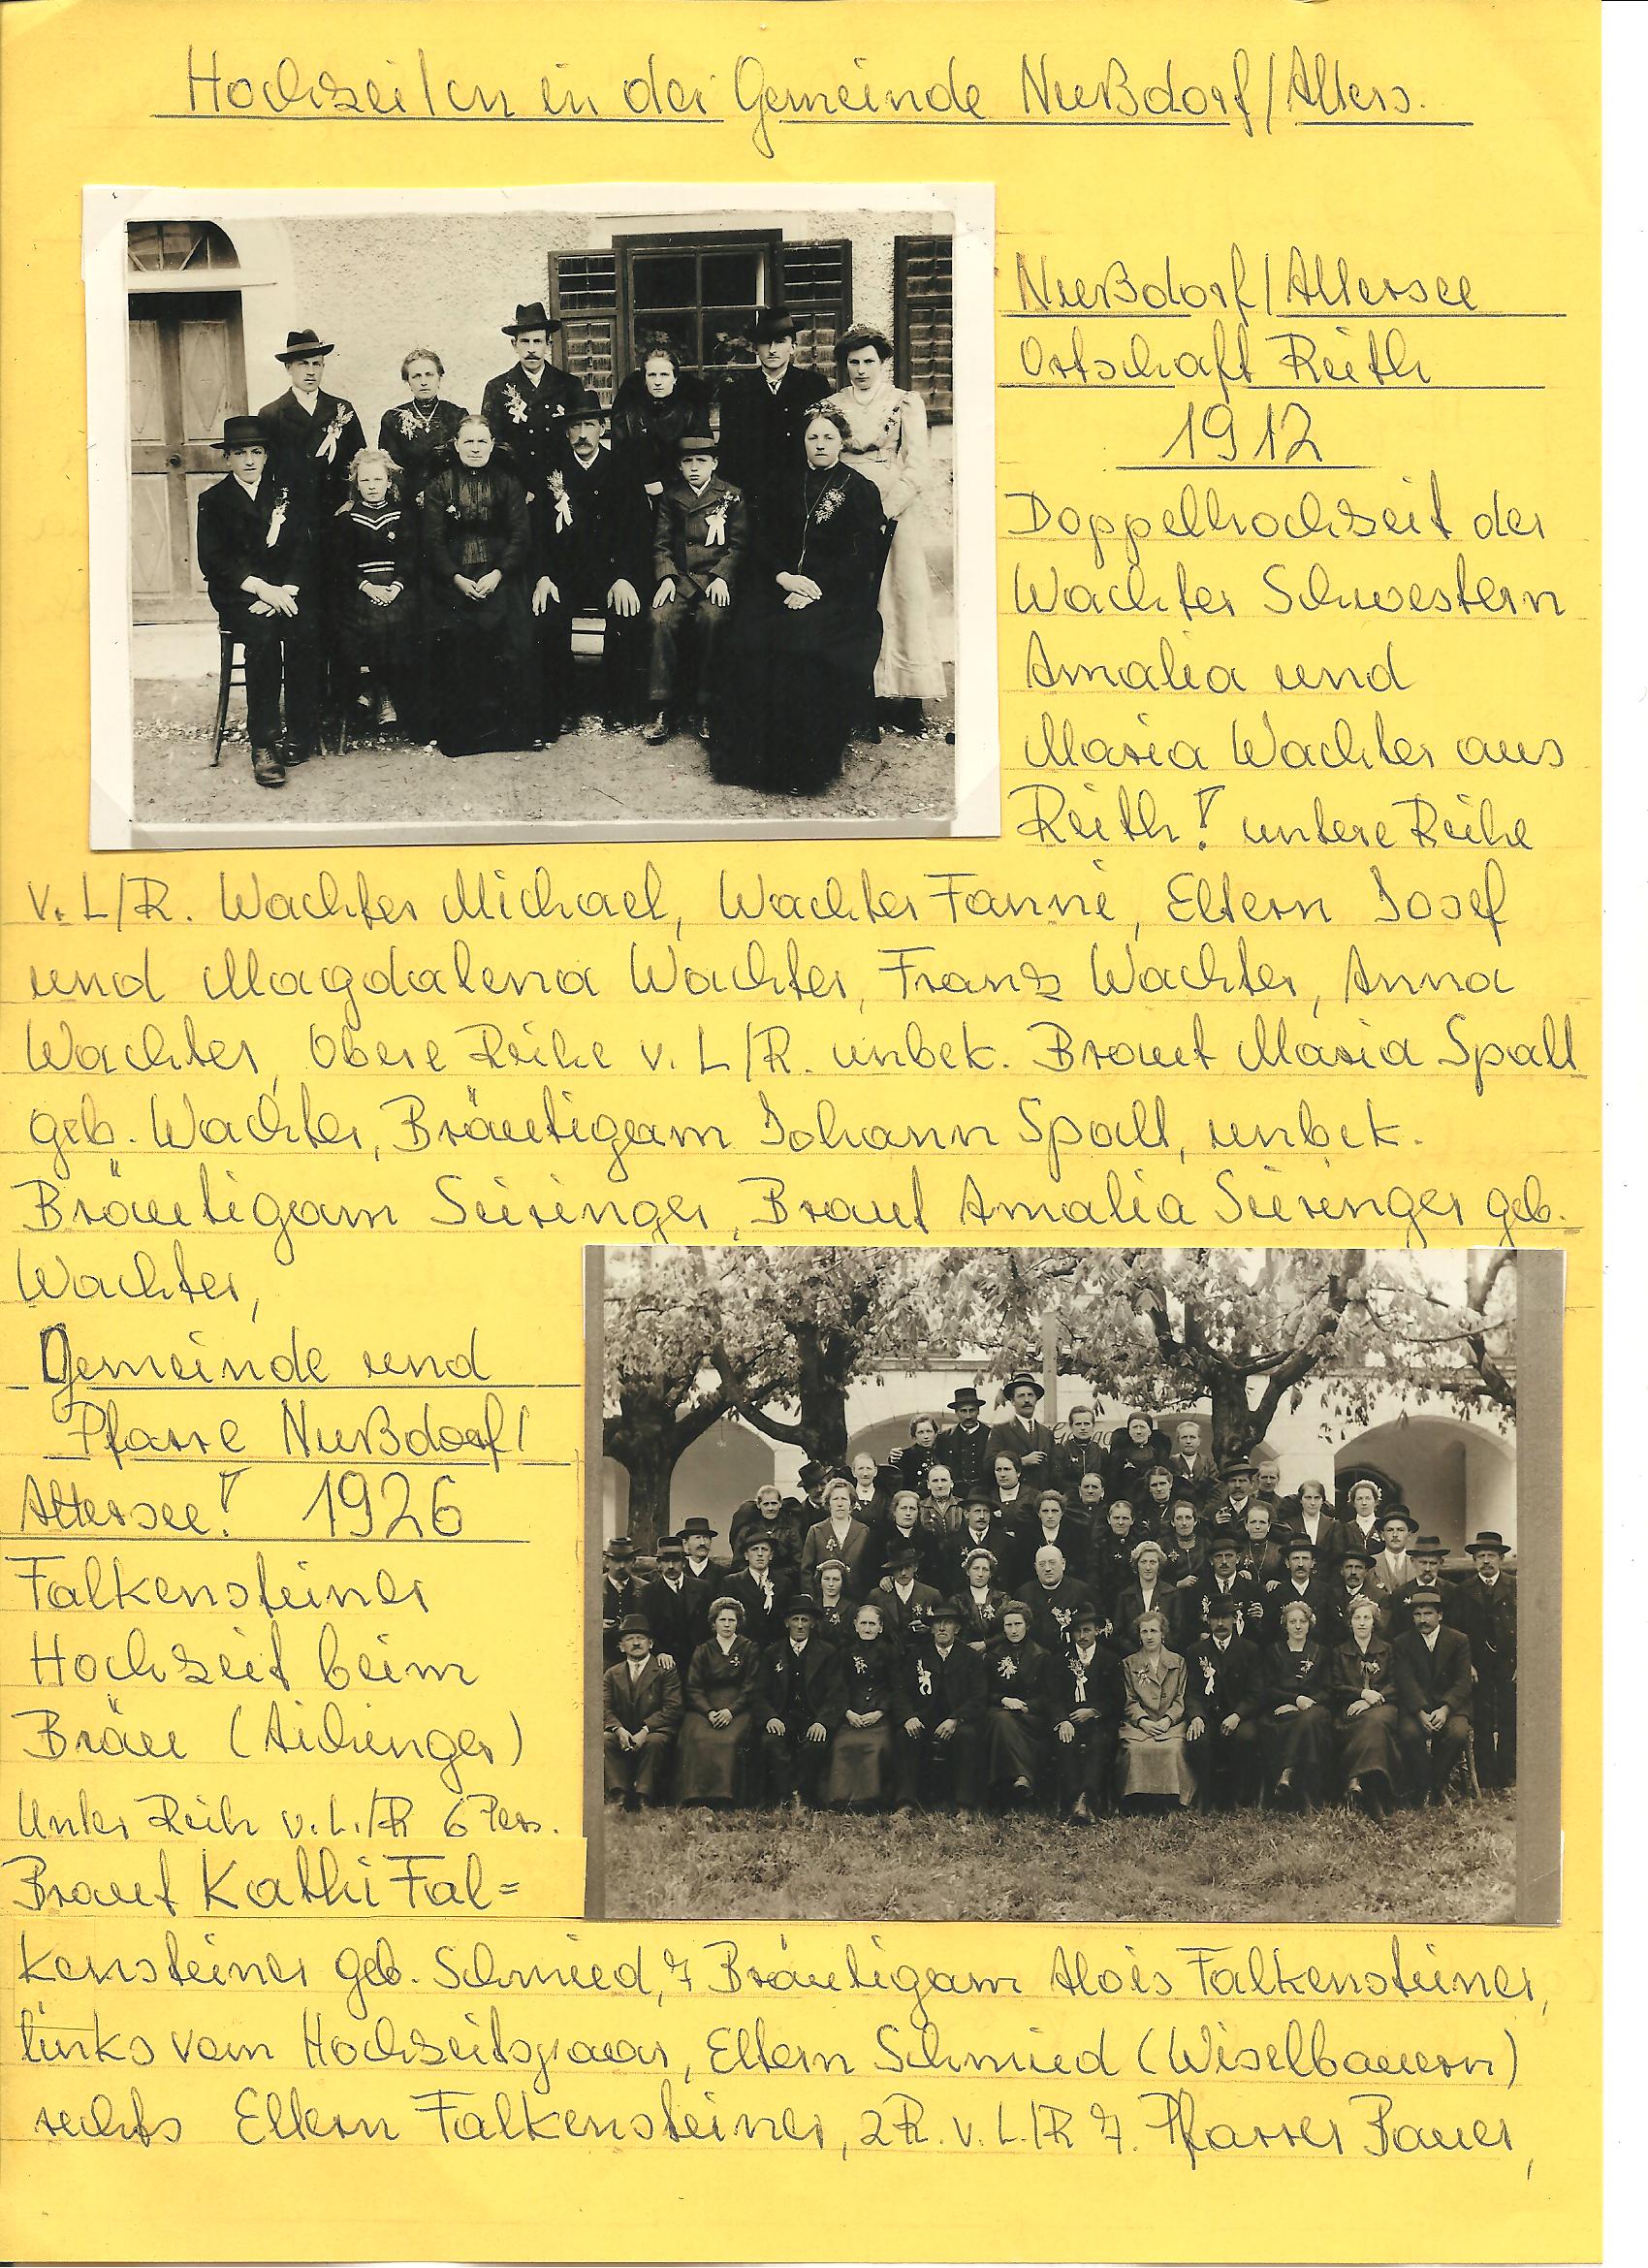 Hochzeiten in der Gemeinde Nußdorf/Atters.
Nußdorf/Attersee
Ortschaft Reith
1912
Doppelhochzeit der
Wachter Schwestern
Amalia und
Maria Wachter aus
Reith! untere Reihe
v. L/R. Wachter Michael, Wachter Fanni, Eltern Josef
und Magdalena Wachter, Franz Wachter, Anna
Wachter, Obere Reihe v. L/R. unbek. Braut Maria Spalt
geb. Wachter, Bräutigam Johann Spalt, unbek.
Bräutigam Seiringer, Braut Amalia Seiringer geb.
Wachter,
Gemeinde und
Pfarre Nußdorf/
Attersee! 1926
Falkensteiner
Hochzeit beim
Bräu (Aichinger)
Unter Reih v.L./R 6 Pers.
Braut Kathi Fal=
kensteiner geb. Schmied, 7 Bräutigam Alois Falkensteiner,
links vom Hochzeitspaar, Eltern Schmied (Wiselbauern)
rechts Eltern Falkensteiner, 2R. v. L./R 7. Pfarrer Bauer,